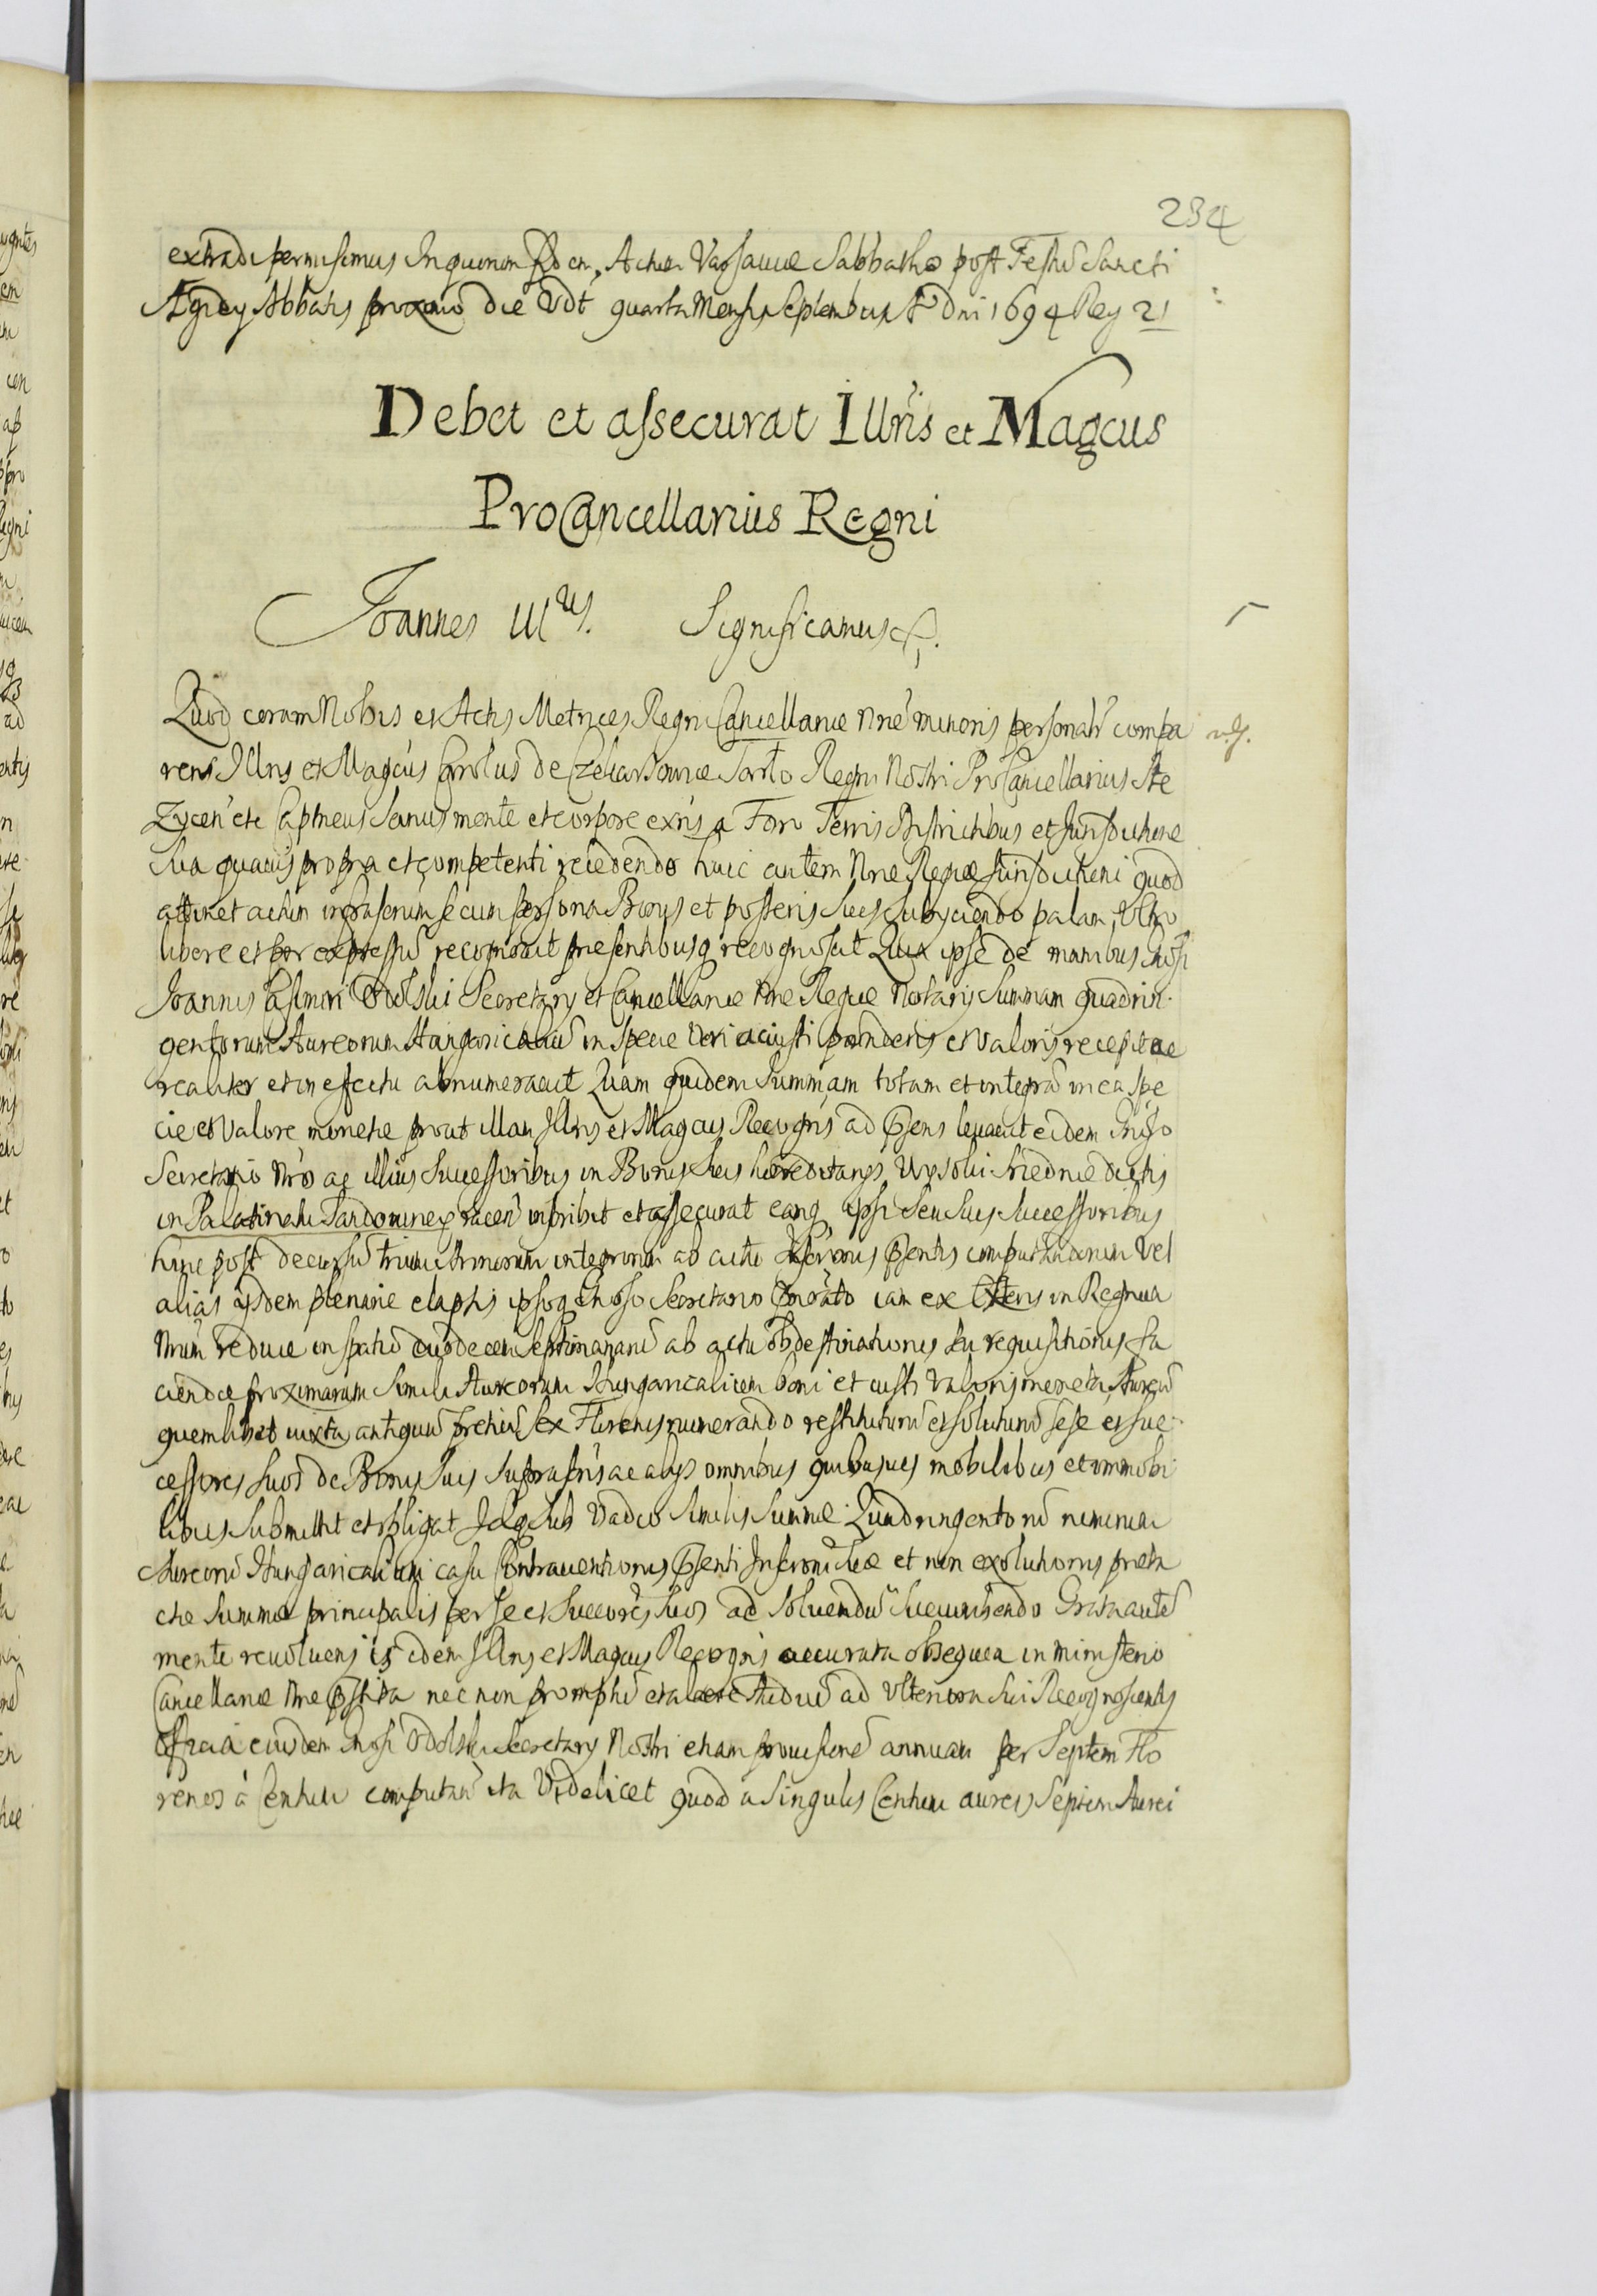 234
extradi permisimus In quorum fidem. Actum Varsaviæ Sabbatho post Festū Sancti
Ægidy Abbatis proximo die Vdt quarta Mensis Septembris Ao Dni 1694 Reg 21
Debet et assecurat Illris et Magcus
ProCancellarius Regni
Joannes IIIus. Significamus &.
Quod coram Nobis et Actis Metrices Regni Cancellariæ Nræ minoris personalr compa
rens Illris et Magcus Carolus de Tarło Regni Nostri ProCancellarius Ste
Zycen̄ etc Captneus Sanus mente et corpore exn̄s a Foro Terris Districtibus et Jurisdictione
Sua quavis propra et competenti recedendo huic autem Nræ Regiæ Jurisdictioni quod
attinet actum infrascrium se cum persona Bonis et posteris suis subyciendo palam, Vltro
libere et per expressū recognovit presentibusq recognoscit Quia ipse de manibus Gnosi
Joannis Casimiri Odolski Secretary et Cancellariæ Nræ Regiæ Notarij Summam quadrin
gentorum Aureorum Hungaricaliū in specie Veri ac iusti ponderis et Valoris recepit ac
realiter et in effectu abnumeravit Quam quidem Summam totam et integrā in ea spe
cie et Valore monetæ prout illam Illris et Magcus Recogns ad psens levavit eidem Gnoso
Secretario Nro ac illius Successoribus in Bonis suis hæreditarys dictis
in Palatinatu Sandomir inscribit et assecurat eamq ipsi seu suis Successoribus
hanc post decursū trium Annorum integrorum ab actu Inscrionis psentis computandorum Vel
alias ijsdem plenarie elapsis ipsoq Gnoso Secretario iam ex Exteris in Regnum
Nrum reduce in spatio duodecem Septimanarū ab actu obdestinationis seu requisitionis fa
ciendæ proximarum simili Aureorum Hungaricalium boni et iusti Valoris moneta Aureū
quemlibet iuxta antiquū pretiū sex Florenis numerando restituturū et soluturū sese et suc
cessores suos de Bonis suis suprascris ac alijs omnibus quibusvis mobilibus et immobi
libus submittit et obligat Idq sub Vadio similis Summæ Quadringentorū
Aureorū Hungaricalium casu Contraventionis psenti Inscrioni suæ et non exolutionis præta
ctæ Summæ principalis per se et Succores suos ad solvendū succumbendo Grata autē
mente revolvens is idem Illris et Magcus Recogns accurata obsequia in ministerio
Cancellariæ Nræ pstita nec non promptū et Studiū ad Vlteriora sui Recognoscentis
Officia eiusdem Gnosi Odolski Secretary Nostri etiam provisionē annuam per Septem Flo
renos à Centum computan̄ ita Videlicet quod a Singulis Centum aureis Septem Aurei